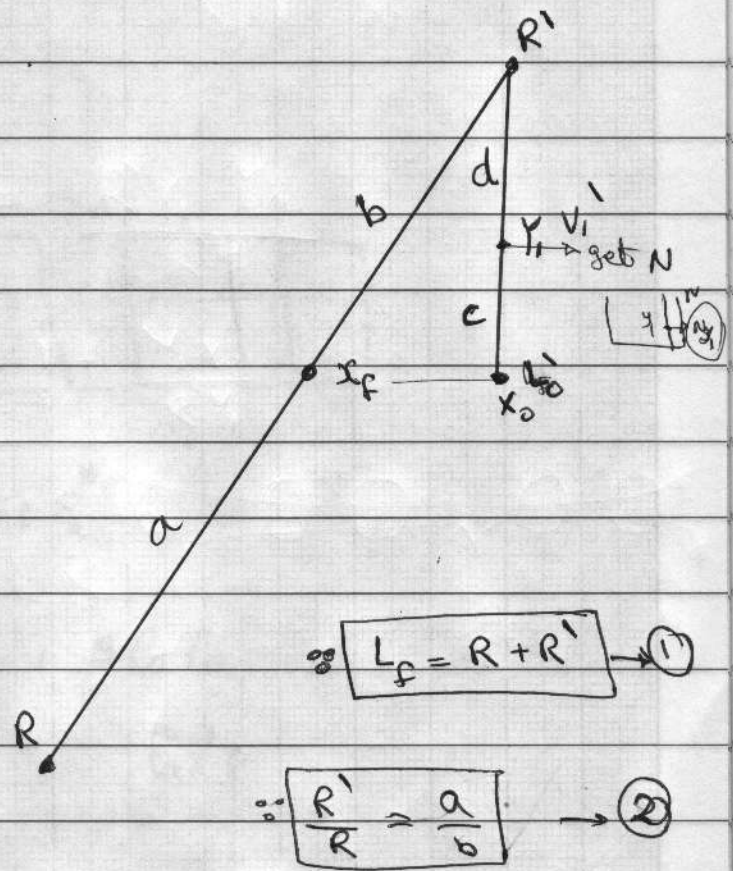 R'
d
b
Y₁ V₁' → get N
c
x_f
x₀
a
∴ L_f = R + R' → ①
R
∴ R'/R = a/b → ②